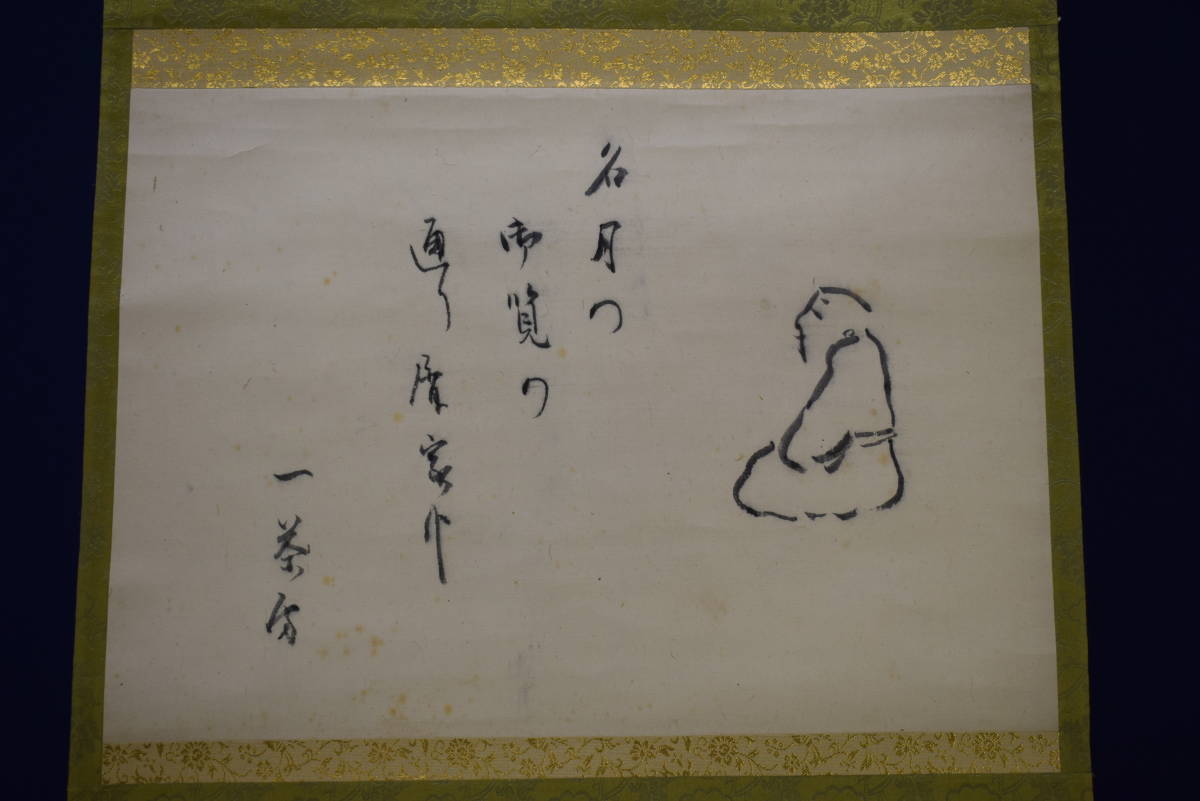 名月の
御覧の
通り屑家也
一茶坊